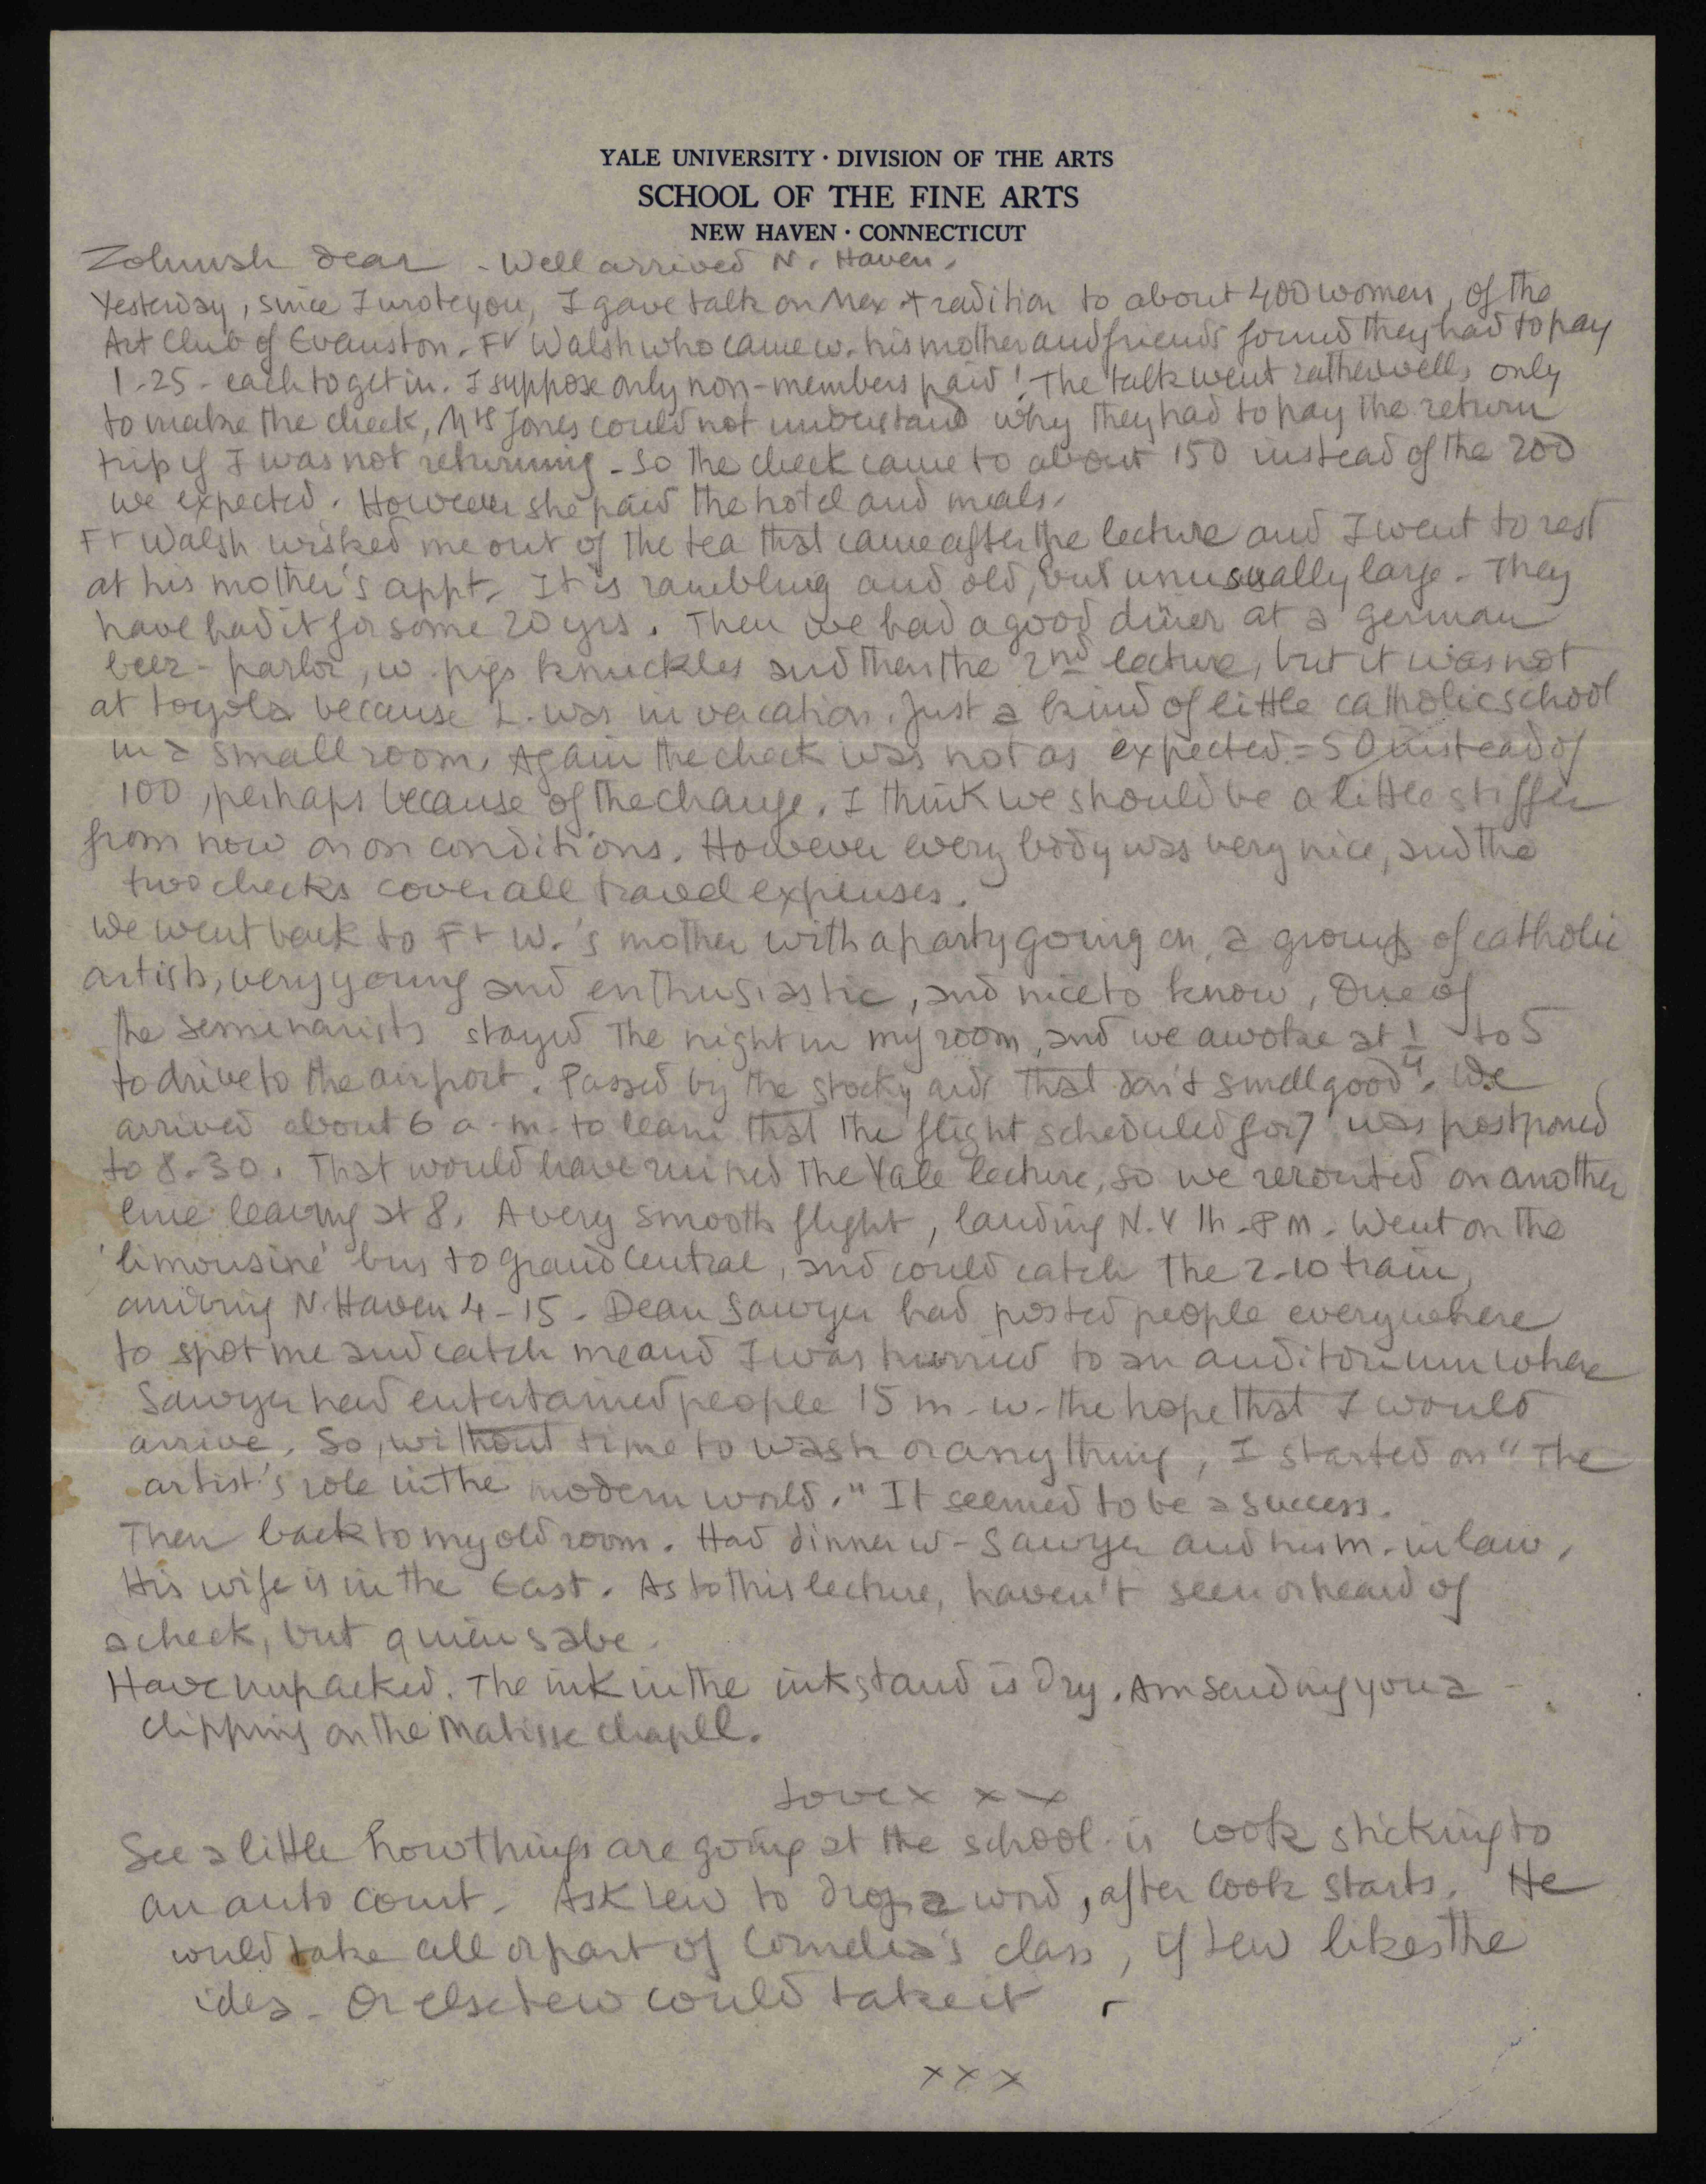 YALE UNIVERSITY · DIVISION OF THE ARTS
SCHOOL OF THE FINE ARTS
NEW HAVEN · CONNECTICUT
Zohmah dear - Well arrived N. Haven.
Yesterday, since I wrote you, I gave talk on Mex tradition to about 400 women, of the
Art Club of Evanston. Fr Walsh who came w. his mother and friends found they had to pay
1-25 - each to get in. I suppose only non-members paid! The talk went rather well, only
to make the check, Mrs Jones could not understand why they had to pay the return
trip if I was not returning - So the check came to about 150 instead of the 200
we expected. However she paid the hotel and meals.
Fr Walsh wisked me out of the tea that came after the lecture and I went to rest
at his mother's appt. It is rambling and old, but unusually large. They
have had it for some 20 yrs. Then we had a good diner at a german
beer-parlor, w. pigs knuckles and then the 2nd lecture, but it was not
at Loyola because L. was in vacation. Just a kind of little catholic school
in a small room. Again the check was not as expected = 50 instead of
100, perhaps because of the change. I think we should be a little stiffer
from now on on conditions. However every body was very nice, and the
two checks cover all travel expenses.
We went back to Fr W.'s mother with a party going on, a group of catholic
artists, very young and enthusiastic, and nice to know, One of
the seminarists stayed the night in my room, and we awoke at 1/4 to 5
to drive to the airport. Passed by the stocky ards that don't smell good. We
arrived about 6 a-m- to learn that the flight scheduled for 7 was postponed
to 8-30. That would have ruined the Yale lecture, so we rerouted on another
line leaving at 8. A very smooth flight, landing N.Y 1h-PM. Went on the
'limousine' bus to grand Central, and could catch the 2-10 train,
arriving N. Haven 4-15. Dean Sawyer had posted people everywhere
to spot me and catch me and I was hurried to an auditorium where
Sawyer had entertained people 15 m - w - the hope that I would
arrive. So, without time to wash or anything, I started on "The
artist's role in the modern world." It seemed to be a success.
Then back to my old room. Had dinner w- Sawyer and his m. in law.
His wife is in the East. As to this lecture, haven't seen or heard of
a check, but quien sabe.
Have unpacked. The ink in the inkstand is dry. Am sending you a
clipping on the Matisse chapell.
Love x x x
See a little how things are going at the school - is Cook sticking to
an auto court. Ask Lew to drop a word, after Cook starts. He
would take all or part of Cornelia's class, if Lew likes the
idea - Or else Lew could take it.
x x x